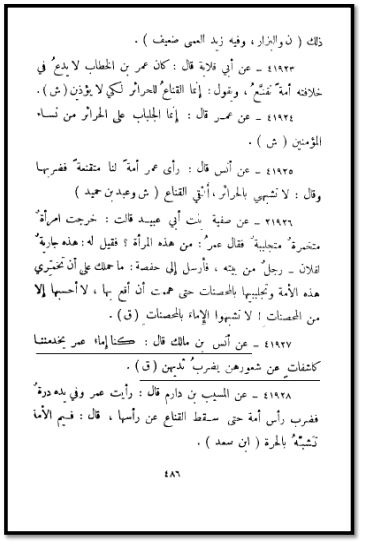 ذلك ( ن والبزار ، وفيه زيد العمى ضعيف ) .
٤١٩٢٣ ـ عن أبي قلابة قال : كان عمر بن الخطاب لا يدعُ في
خلافته أمةً تقنَّعُ ، ويقول : إنما القناعُ للحرائر لكي لا يؤذين ( ش ) .
٤١٩٢٤ ـ عن عمر قال : إنما الجلباب على الحرائر من نساء
المؤمنين ( ش ) .
٤١٩٢٥ ـ عن أنس قال : رأى عمر أمةً لنا متقنعةً فضربها
وقال : لا تشبهي بالحرائر ، ألقي القناع ( ش وعبد بن حميد )
٤١٩٢٦ ـ عن صفية بنت أبي عبيد قالت : خرجت امرأةٌ
متخمرةٌ متجلببةٌ فقال عمرُ : من هذه المرأة ؟ فقيل له : هذه جاريةٌ
لفلان ـ رجلٌ من بيته ، فأرسل إلى حفصة : ما حملك على أن تخمّري
هذه الأمة وتجلببيها بالمحصنات حتى هممت أن أقع بها ، لا أحسبها إلا
من المحصنات ! لا تشبهوا الإماء بالمحصنات ( ق ) .
٤١٩٢٧ ـ عن أنس بن مالك قال : كنَّ إماءُ عمر يخدمننا
كاشفاتٍ عن شعورهن يضربُ ثديهن ( ق ) .
٤١٩٢٨ ـ عن المسيب بن دارم قال : رأيت عمر وفي يده درةٌ
فضرب رأس أمة حتى سقط القناع عن رأسها ، قال : فيم الأمة
تشبَّهُ بالحرة ( ابن سعد ) .
٤٨٦